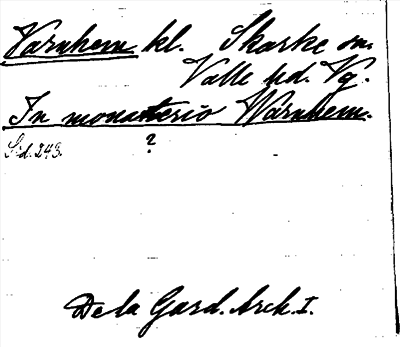 Varnhem kl. Skarke sn.
Valle hd. Vg.
In monasterio Warnhem.
Sid. 243. ?
De la Gard. Ark. I.